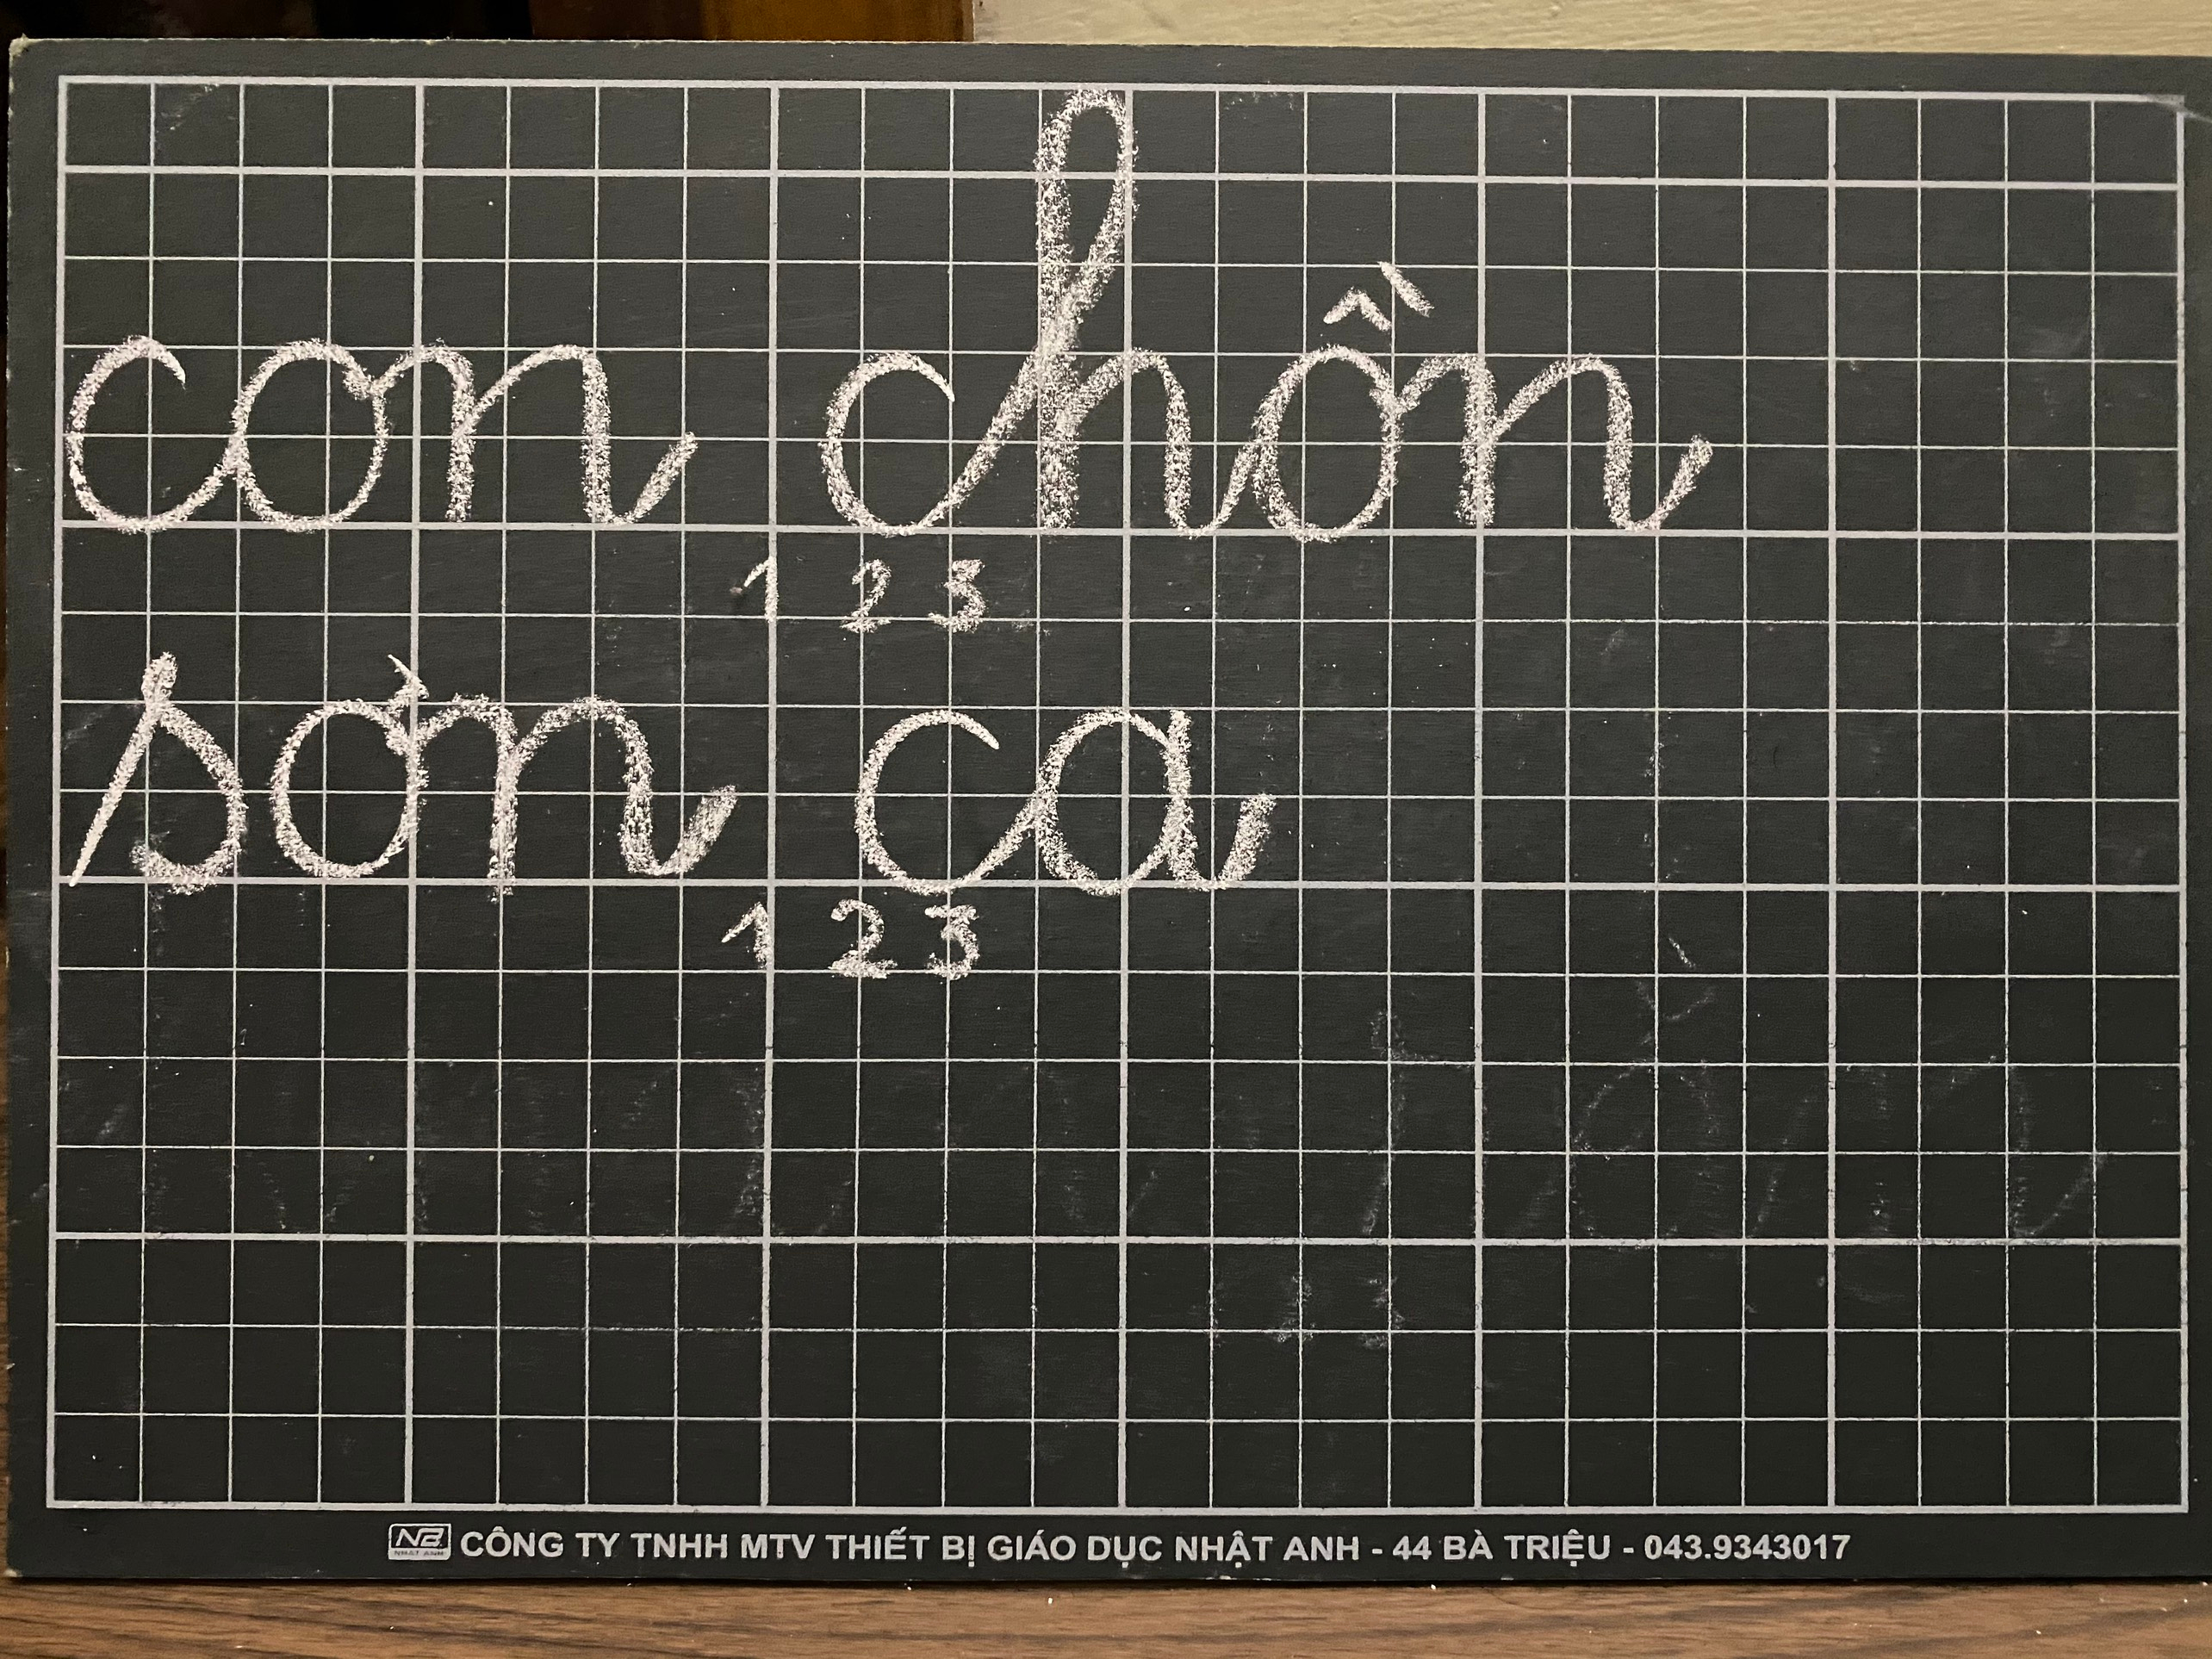 con chồn
1 2 3
sơn ca
1 2 3
NB NHAT ANH CÔNG TY TNHH MTV THIẾT BỊ GIÁO DỤC NHẬT ANH - 44 BÀ TRIỆU - 043.9343017